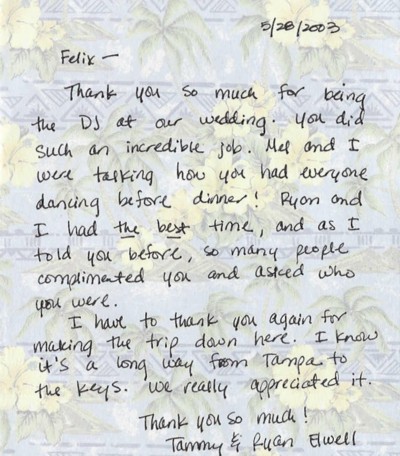 5/28/2003
Felix —
Thank you so much for being
the DJ at our wedding. You did
such an incredible job. Mel and I
were talking how you had everyone
dancing before dinner! Ryan and
I had the best time, and as I
told you before, so many people
complimented you and asked who
you were.
I have to thank you again for
making the trip down here. I know
it's a long way from Tampa to
the Keys. We really appreciated it.
Thank you so much!
Tammy & Ryan Elwell